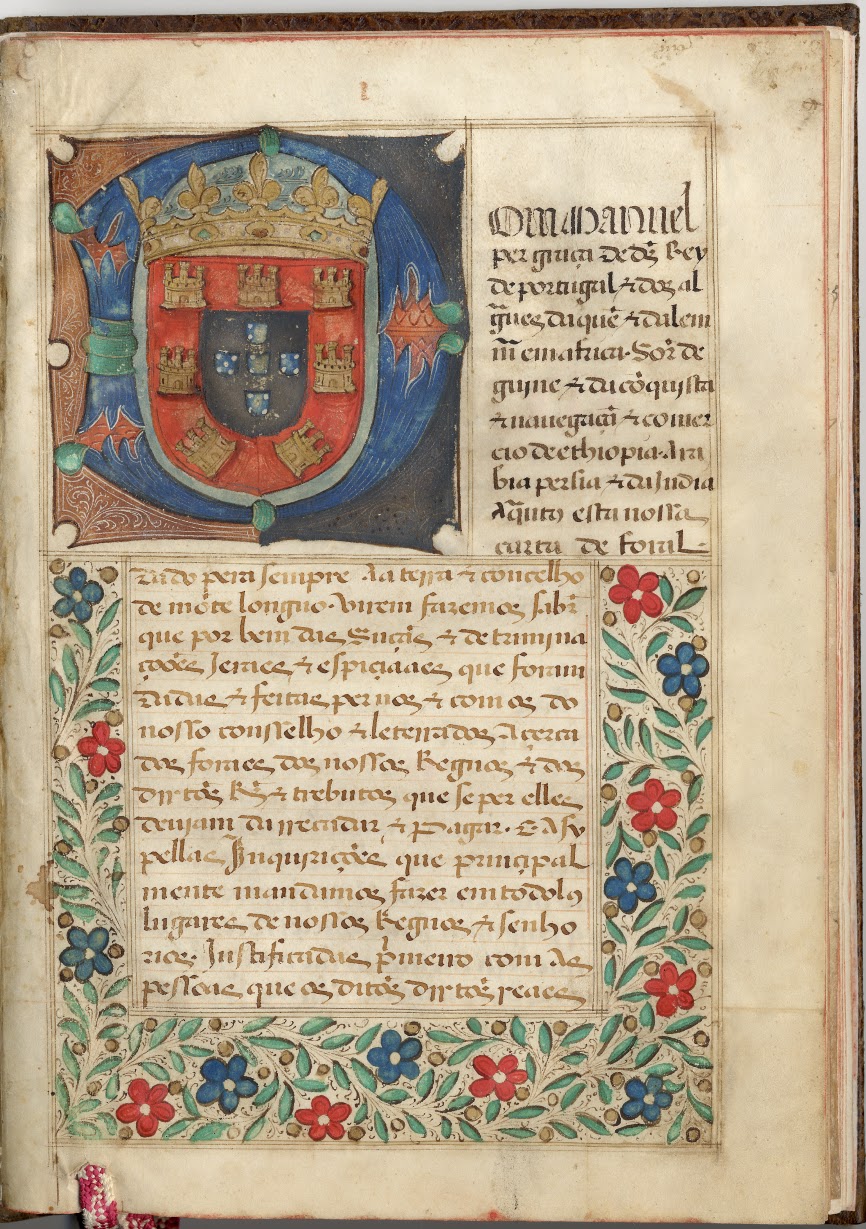 Om Manuel
per graça de ds Rey
de portugal & dos al
gues daque & dalem
m em africa. Sor de
guine & da coquista
& navegaca & comer
cio de ethiopia. Ara
bia persia & da India
Aquto esta nossa
carta de foral
dado pera sempre Aa terra & concelho
de mote longuo. virem fazemos sabr
que por bem das Sūcas & detrimina
ções Jeraes & espiciaaes que foram
dadas & feitas per nos & com os do
nosso conselho & leterrados Acerca
dos foraes dos nossos Regnos & dos
dirtos Rs & trebutos que se per elles
deviam darrecadar & Pagar. E Asy
pellas Inquirições que principal
mente mandamos fazer em todolos
lugares de nossos Regnos & senho
rios. Justificadas prmeiro com As
pessoas que os ditos dirtos reaes